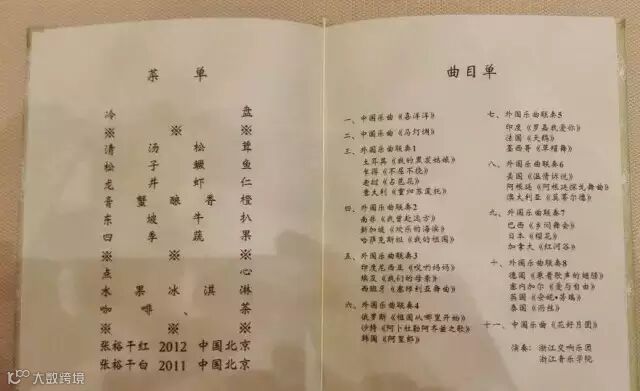 菜 单
冷 盘
※ ※
清 汤 松 茸
松 子 鳜 鱼
龙 井 虾 仁
膏 蟹 酿 香 橙
东 坡 牛 扒
四 季 蔬 果
※ ※ ※
点 心
水 果 冰 淇 淋
咖 啡、 茶
※ ※ ※ ※
张裕干红 2012 中国北京
张裕干白 2011 中国北京
曲目单
一、中国乐曲《喜洋洋》
二、中国乐曲《马灯调》
三、外国乐曲联奏1
土耳其《我的黑发姑娘》
乍得《不屈不挠》
老挝《占芭花》
意大利《重归苏莲托》
四、外国乐曲联奏2
南非《我曾赴远方》
新加坡《欢乐的海滨》
哈萨克斯坦《我的祖国》
五、外国乐曲联奏3
印度尼西亚《哎哟妈妈》
埃及《我们的母亲》
西班牙《塞维利亚舞曲》
六、外国乐曲联奏4
俄罗斯《祖国从哪里开始》
沙特《阿卜杜勒阿齐兹之歌》
韩国《阿里郎》
七、外国乐曲联奏5
印度《罗嘉我爱你》
法国《天鹅》
墨西哥《草帽舞》
八、外国乐曲联奏6
美国《温情诉说》
阿根廷《阿根廷探戈舞曲》
澳大利亚《莫蒂尔德》
九、外国乐曲联奏7
巴西《乡间舞会》
日本《樱花》
加拿大《红河谷》
十、外国乐曲联奏8
德国《乘着歌声的翅膀》
塞内加尔《爱与自由》
英国《安妮·劳瑞》
泰国《雨丝》
十一、中国乐曲《花好月圆》
演奏:浙江交响乐团
浙江音乐学院
大数跨境